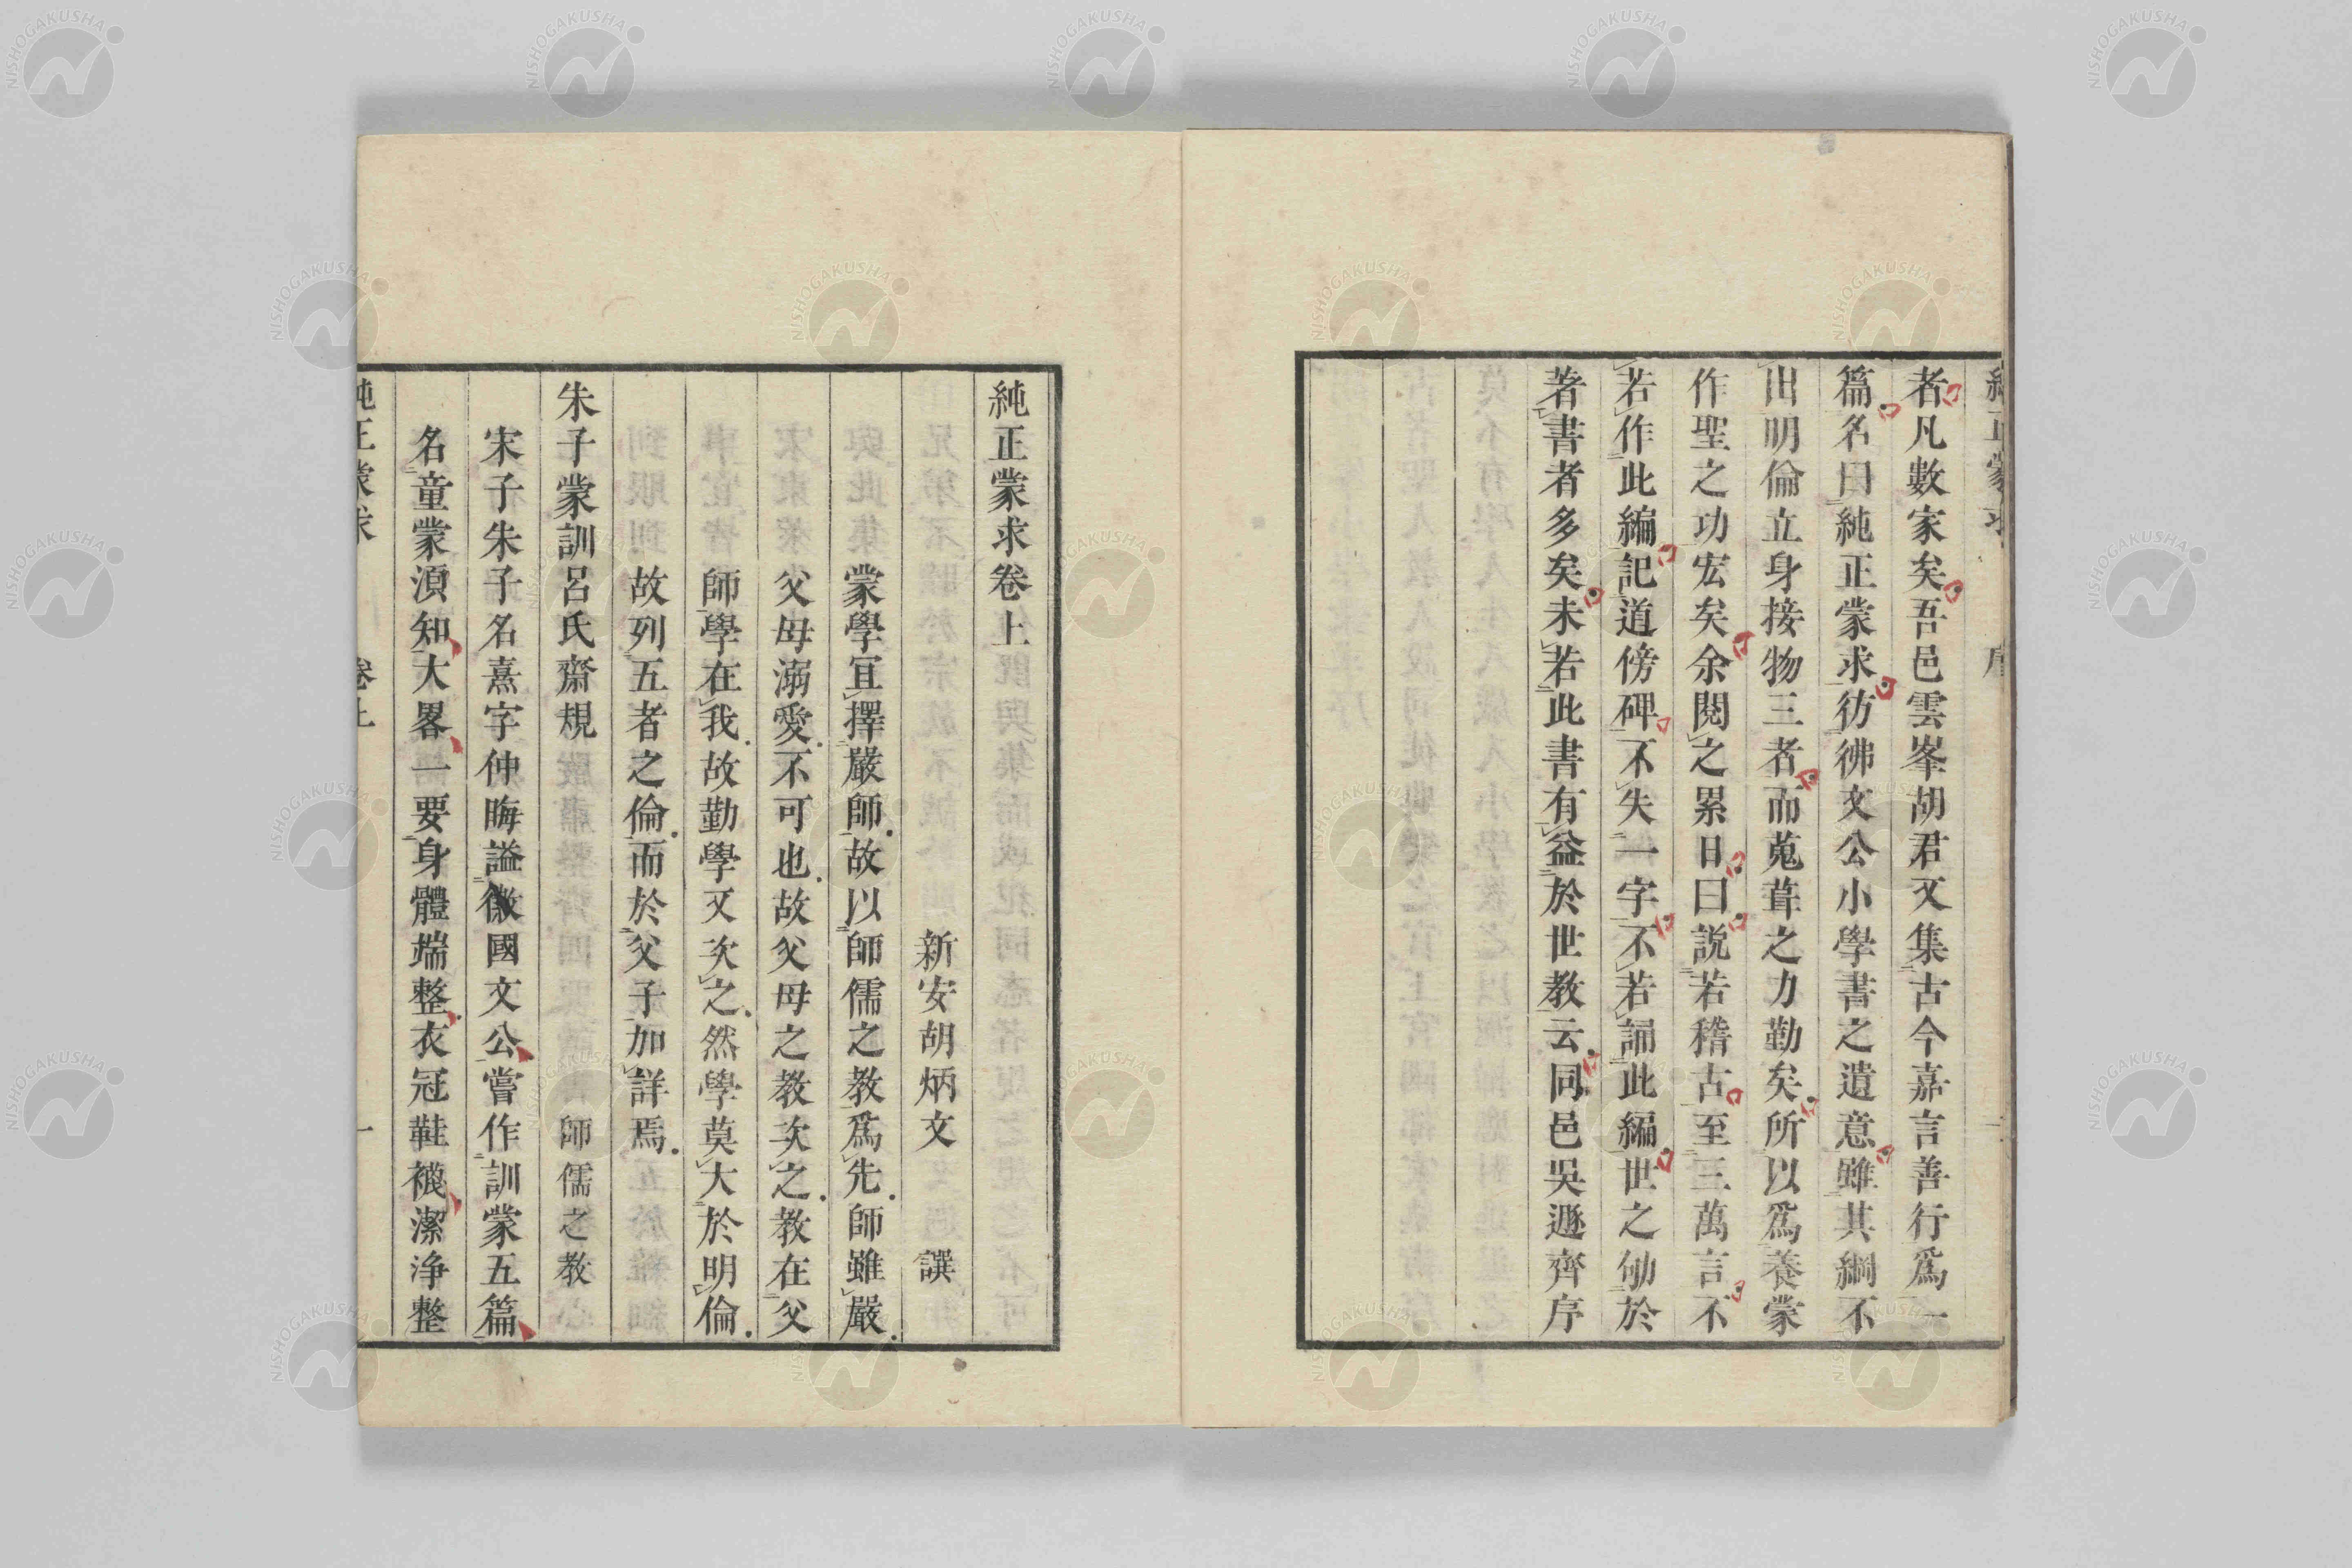 者凡數家矣吾邑雲峯胡君又集古今嘉言善行爲一
篇名曰純正蒙求彷彿文公小學書之遺意雖其綱不
出明倫立身接物三者而蒐葺之力勤矣所以爲養蒙
作聖之功宏矣余閱之累日曰説若稽古至三萬言不
若作此編記道傍碑不失一字不若誦此編世之劬於
著書者多矣未若此書有益於世教云同邑吳遜齊序
純正蒙求卷上
新安胡炳文 譔
蒙學宜擇嚴師故以師儒之教爲先師雖嚴
父母溺愛不可也故父母之教次之教在父
師學在我故勤學又次之然學莫大於明倫
故列五者之倫而於父子加詳焉
朱子蒙訓呂氏齋規 師儒之教
宋子朱子名熹字仲晦謚徽國文公嘗作訓蒙五篇
名童蒙湏知大畧一要身體端整衣冠鞋襪潔浄整
純正蒙求 卷上 一
NISHOGAKUSHA